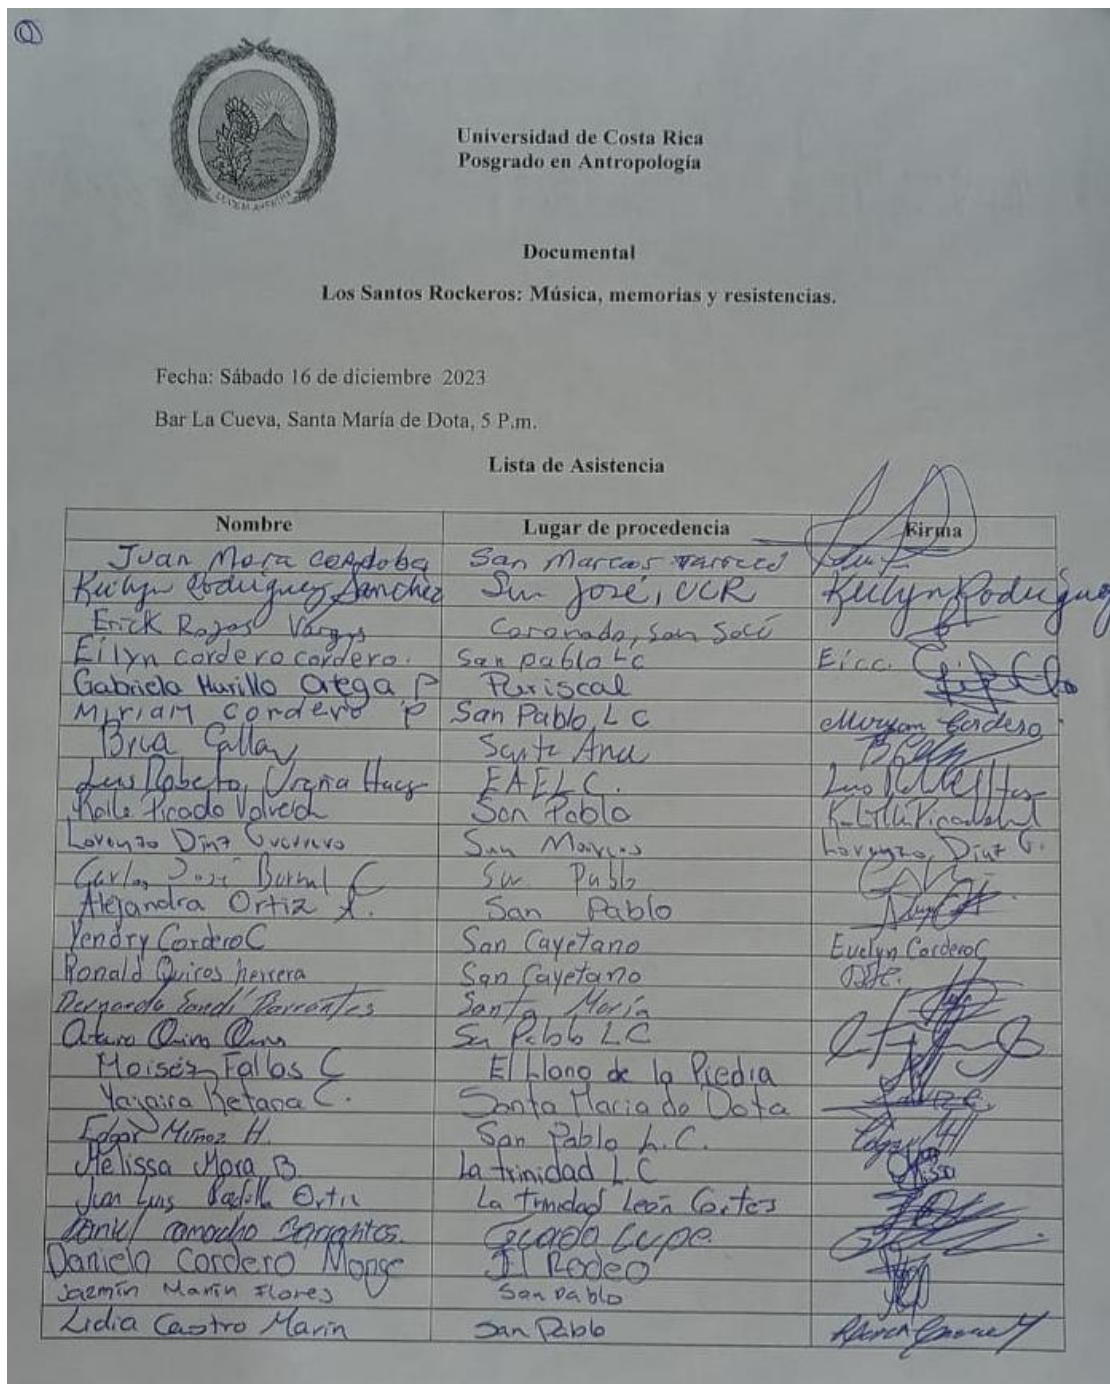 1
LUCEM ASPICIO
Universidad de Costa Rica
Posgrado en Antropología
Documental
Los Santos Rockeros: Música, memorias y resistencias.
Fecha: Sábado 16 de diciembre 2023
Bar La Cueva, Santa María de Dota, 5 P.m.
Lista de Asistencia
Nombre Lugar de procedencia Firma
Juan Mora Cordoba San Marcos Tarrazú
Keilyn Rodríguez Sánchez San José, UCR Keilyn Rodríguez
Erick Rojas Vargas Coronado, San José
Eilyn cordero cordero. San pablo LC Eicc.
Gabriela Murillo Ortega P Puriscal
Miriam Cordero P San Pablo L C Miryam Cordero
Santa Ana
Luis Roberto, Ureña EAELC. Luis
Picado Valverde San Pablo
Lorenzo Diaz Guerrero San Marcos Lorenzo, Diaz G.
Carlos José C San Pablo
Alejandra Ortiz A. San Pablo
Yendry Cordero C San Cayetano Evelyn Cordero C
Ronald Quiros herrera San Cayetano
Bernardo Sandí Barrantes Santa María
Arturo San Pablo LC
Moisés Fallas C El Llano de la Piedra
Yazaira Retana C. Santa Maria de Dota
Edgar Muñoz H. San Pablo L.C. Edgar
Melissa Mora B La trinidad L.C
Juan Luis Padilla Ortiz La trinidad León Cortes
Daniel camacho Barrantes. Guadalupe
Daniela Cordero Monge El Rodeo
Jazmín Marín Flores San Pablo
Lidia Castro Marin San Pablo